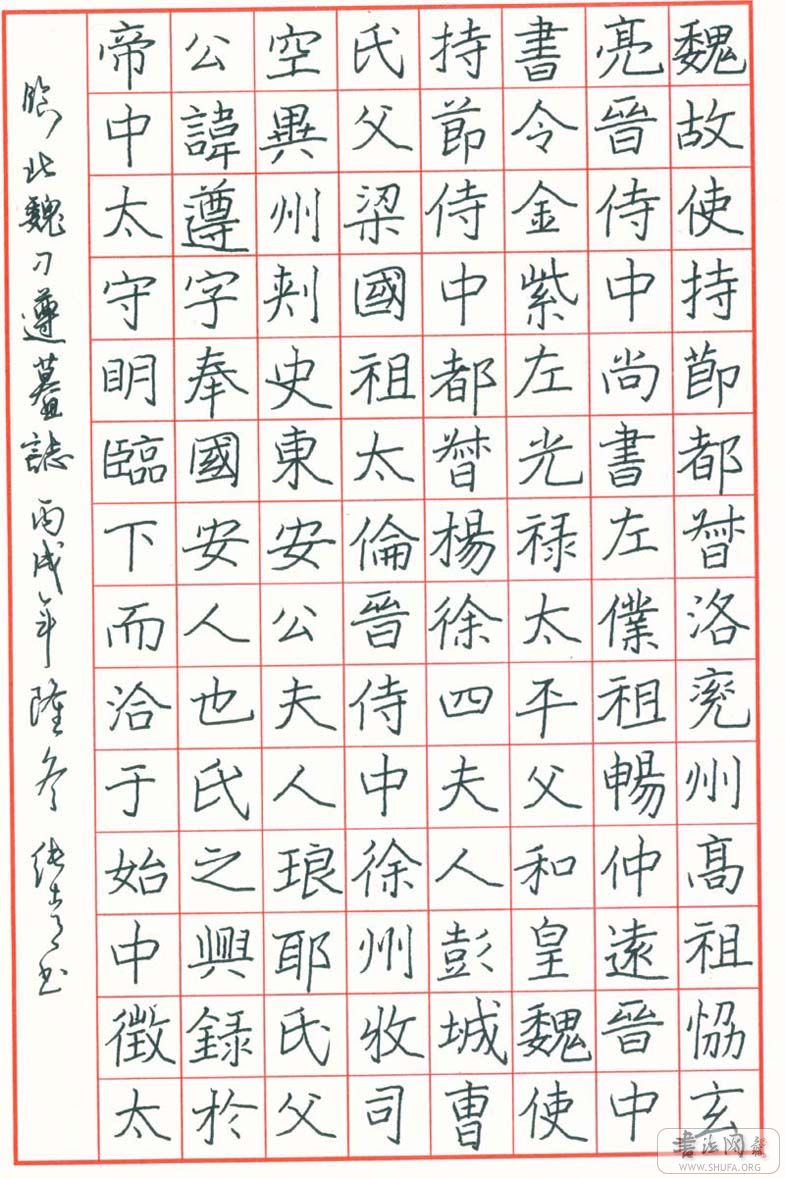 魏故使持節都督洛兖州髙祖恊玄
亮晉侍中尚書左僕祖暢仲遠晉中
書令金紫左光禄太平父和皇魏使
持節侍中都督楊徐四夫人彭城曹
氏父梁國祖太倫晉侍中徐州收司
空兾州刺史東安公夫人琅耶氏父
公諱遵字奉國安人也氏之興録於
帝中太守明臨下而洽于始中徵太
臨北魏刁遵墓誌丙戌年隆冬书
書法网
WWW.SHUFA.ORG